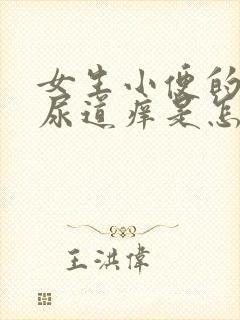 女生小便的
尿道痒是怎
王洪偉